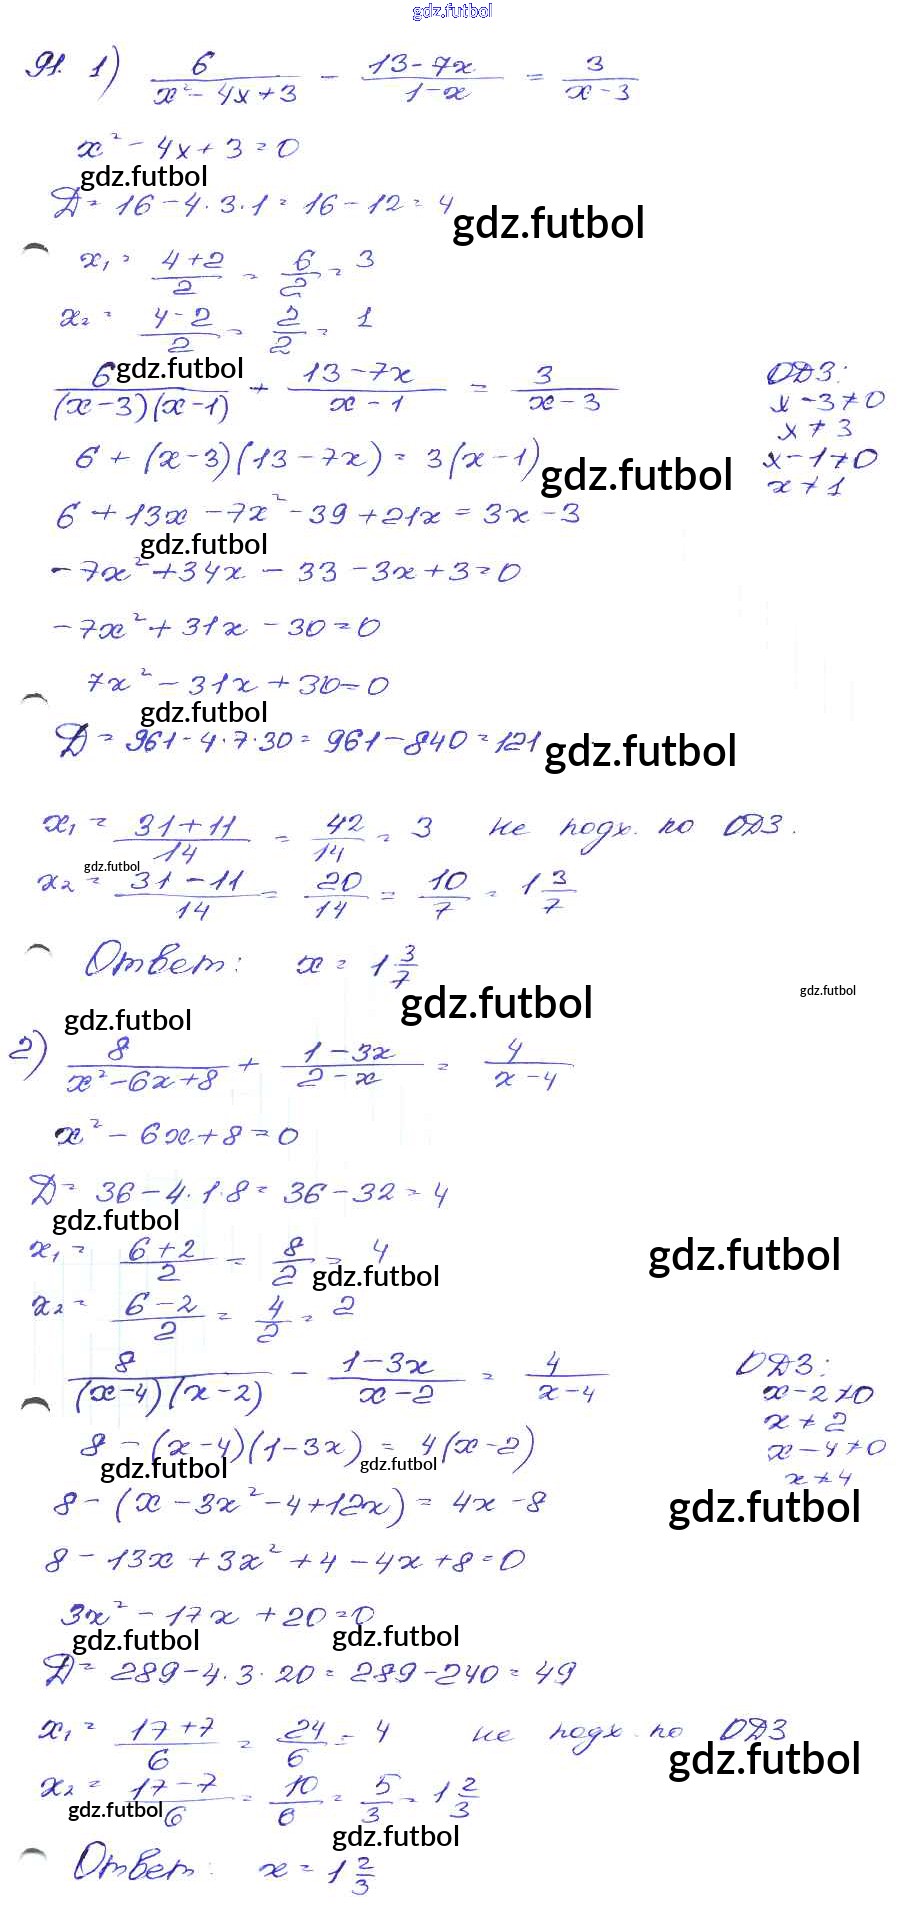 gdz.futbol
91. 1) 6/(x² - 4x + 3) - (13 - 7x)/(1 - x) = 3/(x - 3)
x² - 4x + 3 = 0
gdz.futbol
Д = 16 - 4 · 3 · 1 = 16 - 12 = 4
gdz.futbol
x₁ = (4 + 2)/2 = 6/2 = 3
x₂ = (4 - 2)/2 = 2/2 = 1
gdz.futbol
6/((x - 3)(x - 1)) + (13 - 7x)/(x - 1) = 3/(x - 3)
ОДЗ:
x - 3 ≠ 0
x ≠ 3
x - 1 ≠ 0
x ≠ 1
6 + (x - 3)(13 - 7x) = 3(x - 1)
gdz.futbol
6 + 13x - 7x² - 39 + 21x = 3x - 3
gdz.futbol
-7x² + 34x - 33 - 3x + 3 = 0
-7x² + 31x - 30 = 0
7x² - 31x + 30 = 0
gdz.futbol
Д = 961 - 4 · 7 · 30 = 961 - 840 = 121
gdz.futbol
x₁ = (31 + 11)/14 = 42/14 = 3 не подх. по ОДЗ.
gdz.futbol
x₂ = (31 - 11)/14 = 20/14 = 10/7 = 1 3/7
Ответ: x = 1 3/7
gdz.futbol
gdz.futbol
gdz.futbol
2) 8/(x² - 6x + 8) + (1 - 3x)/(2 - x) = 4/(x - 4)
x² - 6x + 8 = 0
Д = 36 - 4 · 1 · 8 = 36 - 32 = 4
gdz.futbol
x₁ = (6 + 2)/2 = 8/2 = 4
gdz.futbol
gdz.futbol
x₂ = (6 - 2)/2 = 4/2 = 2
8/((x - 4)(x - 2)) - (1 - 3x)/(x - 2) = 4/(x - 4)
ОДЗ:
x - 2 ≠ 0
x ≠ 2
x - 4 ≠ 0
x ≠ 4
8 - (x - 4)(1 - 3x) = 4(x - 2)
gdz.futbol
gdz.futbol
8 - (x - 3x² - 4 + 12x) = 4x - 8
gdz.futbol
8 - 13x + 3x² + 4 - 4x + 8 = 0
3x² - 17x + 20 = 0
gdz.futbol
gdz.futbol
Д = 289 - 4 · 3 · 20 = 289 - 240 = 49
x₁ = (17 + 7)/6 = 24/6 = 4 не подх. по ОДЗ
gdz.futbol
x₂ = (17 - 7)/6 = 10/6 = 5/3 = 1 2/3
gdz.futbol
gdz.futbol
Ответ: x = 1 2/3